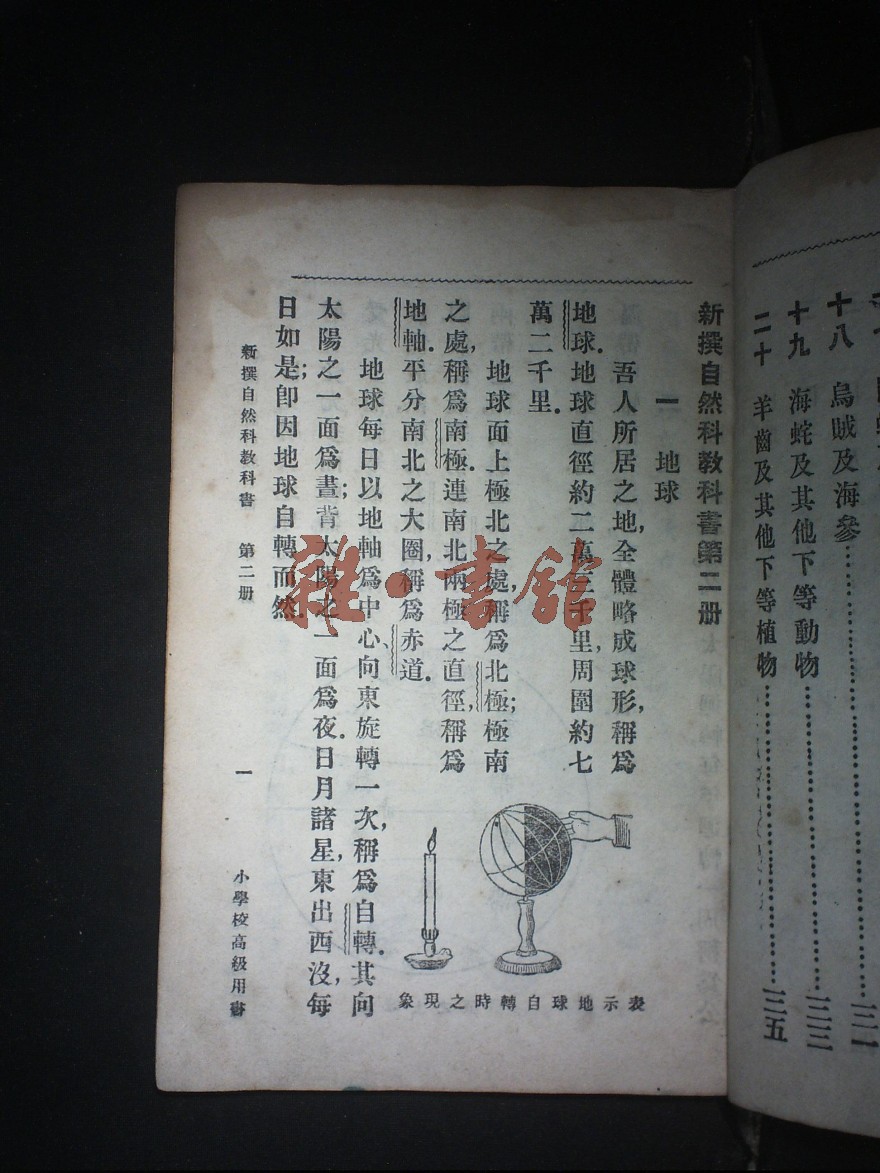 十八　烏賊及海參……三一
十九　海蛇及其他下等動物……三三
二十　羊齒及其他下等植物……三五
新撰自然科教科書第二册
一　地球
吾人所居之地,全體略成球形,稱爲
地球.地球直徑約二萬三千里,周圍約七
萬二千里.
地球面上極北之處,稱爲北極;極南
之處,稱爲南極.連南北兩極之直徑,稱爲
地軸.平分南北之大圈,稱爲赤道.
地球每日以地軸爲中心,向東旋轉一次,稱爲自轉.其向
太陽之一面爲晝;背太陽之一面爲夜.日月諸星,東出西沒,每
日如是;卽因地球自轉而然.
表示地球自轉時之現象
新撰自然科教科書　第二册　一　小學校高級用書
雜·書館